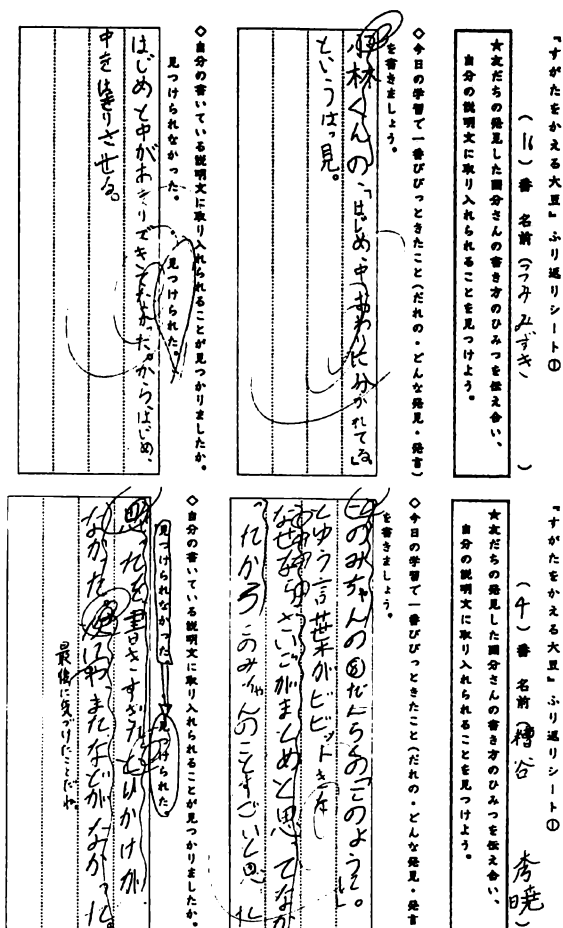 『すがたをかえる大豆』ふり返りシート①
(16)番 名前(つつみ みずき)
★友だちの発見した国分さんの書き方のひみつを伝え合い、
自分の説明文に取り入れられることを見つけよう。
◇今日の学習で一番びびっときたこと(だれの・どんな発見・発言)
を書きましょう。
小林くんの、「はじめ、中、おわりに分かれてる」
というはっ見。
◇自分の書いている説明文に取り入れられることが見つかりましたか。
見つけられなかった。・見つけられた。
はじめと中がおわりで
からはじめ、
中をはっきりさせる。
『すがたをかえる大豆』ふり返りシート①
(4)番 名前(糟谷 秀暁)
★友だちの発見した国分さんの書き方のひみつを伝え合い、
自分の説明文に取り入れられることを見つけよう。
◇今日の学習で一番びびっときたこと(だれの・どんな発見・発言
を書きましょう。
このみちゃんの⑧だんらくの「このように。」
とゆう言葉がビビット
なぜならさいごがまとめと思ってなか
ったから このみちゃんのことすごいと思
◇自分の書いている説明文に取り入れられることが見つかりましたか。
見つけられなかった 見つけられた。
思ったを書きすぎたとりかけが
なかった またなどがなかった
最後に気づけたことだね。